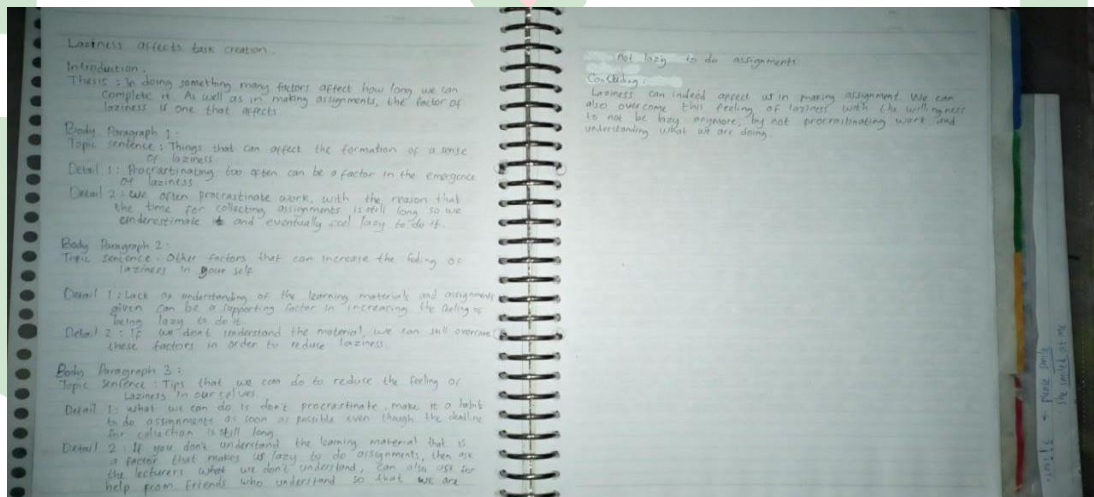 Laziness affects task creation.
Introduction.
Thesis : In doing something many factors affect how long we can
complete it. As well as in making assignments, the factor of
laziness is one that affects
Body Paragraph 1 :
Topic sentence : Things that can affect the formation of a sense
of laziness
Detail 1 : Procrastinating too often can be a factor in the emergence
of laziness
Detail 2 : We often procrastinate work, with the reason that
the time for collecting assignments is still long so we
underestimate it and eventually feel lazy to do it.
Body Paragraph 2 :
Topic sentence : Other factors that can increase the feeling of
laziness in your self
Detail 1 : Lack of understanding of the learning materials and assignments
given can be a supporting factor in increasing the feeling of
being lazy to do it.
Detail 2 : If we don't understand the material, we can still overcome
these factors in order to reduce laziness.
Body Paragraph 3 :
Topic sentence : Tips that we can do to reduce the feeling of
Laziness in our selves.
Detail 1 : What we can do is don't procrastinate, make it a habit
to do assignments as soon as possible even though the deadline
for collection is still long
Detail 2 : If you don't understand the learning material that is
a factor that makes us lazy to do assignments, then ask
the lecturers what we don't understand, can also ask for
help from friends who understand so that we are
not lazy to do assignments.
Concluding :
Laziness can indeed affect us in making assignment. We can
also overcome this feeling of laziness with the willingness
to not be lazy anymore, by not procrastinating work and
understanding what we are doing.
she smiled at me